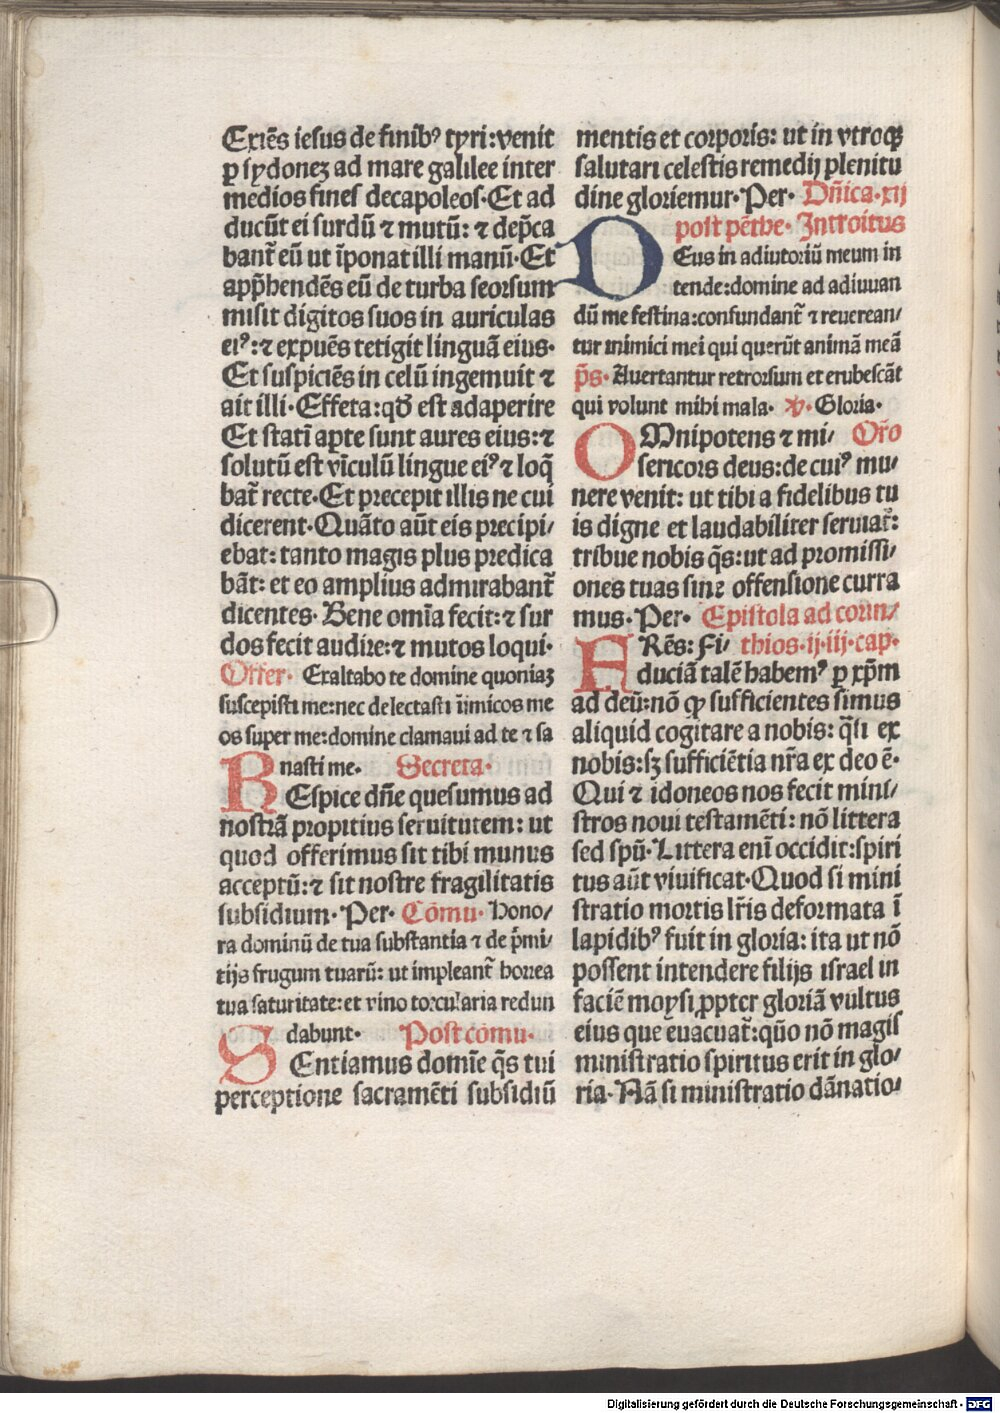 Exiēs iesus de finibꝰ tyri: venit
ꝑ sydonez ad mare galilee inter
medios fines decapoleos· Et ad
ducūt ei surdū ⁊ mutū: ⁊ dep̄ca
bant̄ eū ut īponat illi manū· Et
app̄hendēs eū de turba seorsum
misit digitos suos in auriculas
eiꝰ: ⁊ expuēs tetigit linguā eius·
Et suspiciēs in celū ingemuit ⁊
ait illi· Effeta: qđ est adaperire
Et statī apte sunt aures eius: ⁊
solutū est vīculū lingue eiꝰ ⁊ loq̄
bat̄ recte· Et precepit illis ne cui
dicerent· Quāto aūt eis precipi/
ebat: tanto magis plus predica
bāt: et eo amplius admirabant̄
dicentes· Bene omīa fecit: ⁊ sur
dos fecit audire: ⁊ mutos loqui·
Offer· Exaltabo te domine quoniaz
suscepisti me: nec delectasti īimicos me
os super me: domine clamaui ad te ⁊ sa
nasti me· Secreta·
REspice dn̄e quesumus ad
nostrā propitius seruitutem: ut
quod offerimus sit tibi munus
acceptū: ⁊ sit nostre fragilitatis
subsidium· Per· Cōmu· Hono/
ra dominū de tua substantia ⁊ de p̄mi/
tijs frugum tuarū: ut impleant̄ horrea
tua saturitate: et vino torcularia redun
dabunt· Post cōmu·
SEntiamus domīe q̄s tui
perceptione sacramēti subsidiū
mentis et corporis: ut in vtroqꝫ
salutari celestis remedij plenitu
dine gloriemur· Per· Dn̄ica· xij
post pēthe· Introitus
DEus in adiutoriū meum in
tende: domine ad adiuuan
dū me festina: confundant̄ ⁊ reuerean/
tur inimici mei qui querūt animā meā
p̄s· Auertantur retrorsum et erubescāt
qui volunt mihi mala· ℣· Gloria·
OMnipotens ⁊ mi/ Or̄o
sericors deus: de cuiꝰ mu/
nere venit: ut tibi a fidelibus tu
is digne et laudabiliter seruiat̄:
tribue nobis q̄s: ut ad promissi/
ones tuas sine offensione curra
mus· Per· Epistola ad corin/
FRēs: Fi/ thios· ij· iij· cap·
duciā talē habemꝰ ꝑ xp̄m
ad deū: nō ꝙ sufficientes simus
aliquid cogitare a nobis: q̄si ex
nobis: sꝫ sufficiētia nr̄a ex deo ē·
Qui ⁊ idoneos nos fecit mini/
stros noui testamēti: nō littera
sed spū· Littera enī occidit: spiri
tus aūt viuificat· Quod si mini
stratio mortis lr̄is deformata ī
lapidibꝰ fuit in gloria: ita ut nō
possent intendere filijs israel in
faciē moysi ꝓpter gloriā vultus
eius que euacuat̄: qūo nō magis
ministratio spiritus erit in glo/
ria· Nā si ministratio dānatio/
Digitalisierung gefördert durch die Deutsche Forschungsgemeinschaft - DFG